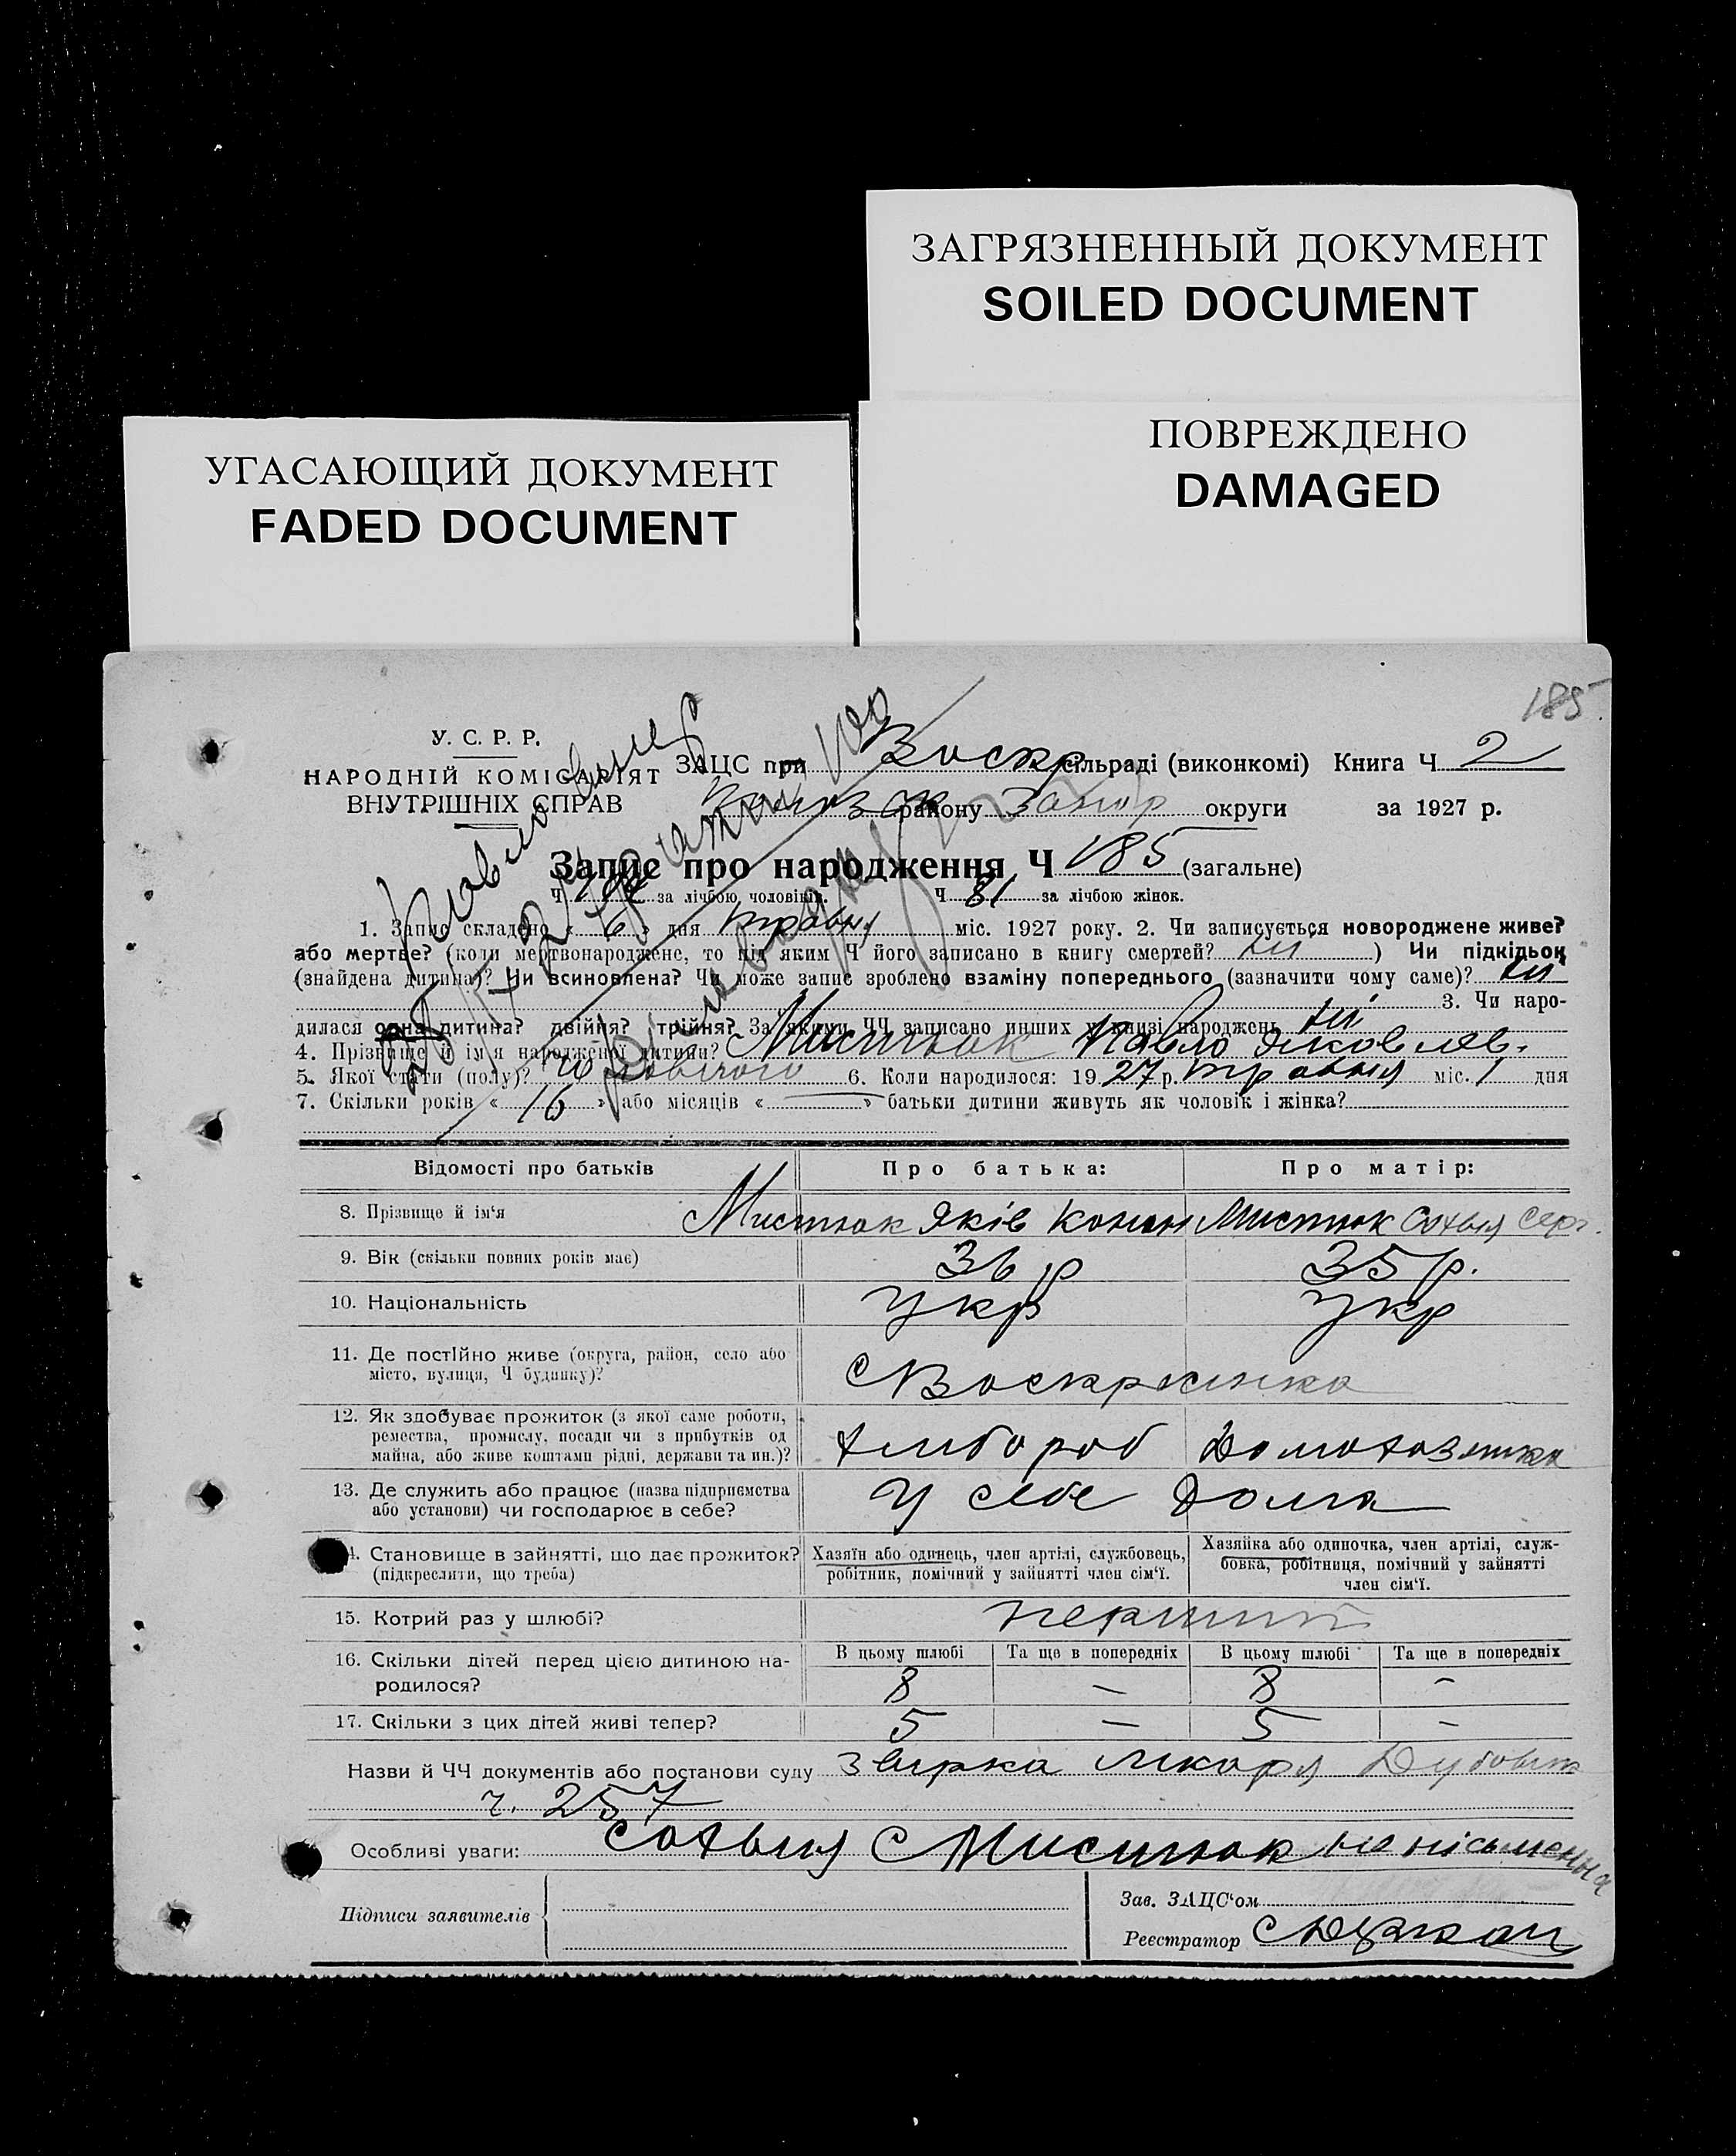 ЗАГРЯЗНЕННЫЙ ДОКУМЕНТ
SOILED DOCUMENT
ПОВРЕЖДЕНО
DAMAGED
УГАСАЮЩИЙ ДОКУМЕНТ
FADED DOCUMENT
185
У. С. Р. Р.
НАРОДНІЙ КОМІСАРІЯТ
ВНУТРІШНІХ СПРАВ
ЗАЦС при Воскр сільраді (виконкомі) Книга Ч 2
району Запор округи за 1927 р.
Запис про народження Ч 185 (загальне)
Ч за лічбою чоловіків. Ч 81 за лічбою жінок.
1. Запис складено « 6 » дня травня міс. 1927 року. 2. Чи записується новороджене живе?
або мертве? (коли мертвонароджене, то під яким Ч його записано в книгу смертей? ні ) Чи підкідьок
(знайдена дитина)? Чи всиновлена? Чи може запис зроблено взаміну попереднього (зазначити чому саме)? ні
3. Чи наро-
дилася одна дитина? двійня? трійня? За якими ЧЧ записано инших у книзі народжень ні
4. Прізвище й ім'я народженої дитини? Мистюк Павло Яковлев.
5. Якої стати (полу)? чоловічого 6. Коли народилося: 19 27 р. травня міс. 1 дня
7. Скільки років « 16 » або місяців « — » батьки дитини живуть як чоловік і жінка?
Відомості про батьків Про батька: Про матір:
8. Прізвище й ім'я Мистюк Яків Конон Мистюк Софья Серг.
9. Вік (скільки повних років має) 36 р 35 р.
10. Національність Укр Укр
11. Де постійно живе (округа, район, село або
місто, вулиця, Ч будинку)? с Воскресенка
12. Як здобуває прожиток (з якої саме роботи,
ремества, промислу, посади чи з прибутків од
майна, або живе коштами рідні, держави та ин.)? Хлібороб Домохазяйка
13. Де служить або працює (назва підприємства
або установи) чи господарює в себе? У себе дома
14. Становище в зайнятті, що дає прожиток?
(підкреслити, що треба)
Хазяїн або одинець, член артілі, службовець,
робітник, помічний у зайнятті член сім'ї.
Хазяйка або одиночка, член артілі, служ-
бовка, робітниця, помічний у зайнятті
член сім'ї.
15. Котрий раз у шлюбі? перший
В цьому шлюбі Та ще в попередніх В цьому шлюбі Та ще в попередніх
16. Скільки дітей перед цією дитиною на-
родилося? 8 — 8 —
17. Скільки з цих дітей живі тепер? 5 — 5 —
Назви й ЧЧ документів або постанови суду лікаря
ч. 257
Особливі уваги: Софья Мистюк не пісьменна
Підписи заявителів
Зав. ЗАЦС'ом
Реєстратор